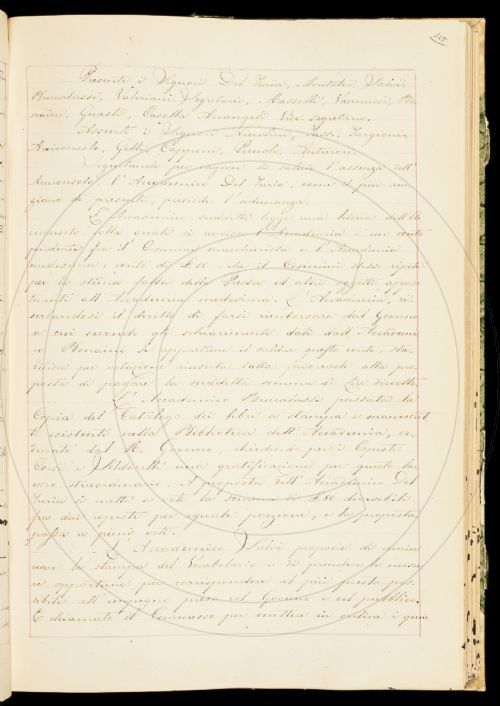 Presenti i Signori Del Furia, Montalvi, Salvi,
Brucalassi, Valeriani Segretario, Masselli, Vannucci, Be
naini, Guasti, Casella Arcangeli Vice segretario.
Assenti i Signori Tassi, Targioni,
Arciconsolo, Gelli, Capponi,
Segretario per ragione di salute l'assenza dell'
Arciconsolo, l'Accademico Del Furia, come il più an
ziano di presenti, presiede l'adunanza.
L'Accademico suddetto legge una lettera dell'
nella quale si avvisa l'Accademia e un conto
pendente fra il Comune e l'Accademia
medesima, conto di che il Comune stesso ripete
per la stima fatta della Presa ed altri oggetti appar
tenenti all'Accademia medesima. L'Accademia, ri
serbandosi il diritto di farsi rimborsare dal Governo
a cui secondo gli schiarimenti dati dall'Accademi
co Bonaini si appartiene il saldare questo conto, sta
bilisce per votazione riuscita tutta favorevole alla pro
posta di pagare la suddetta somma di Lire
L'Accademico Brucalassi passata la
Copia del Catalogo dei libri a stampa e manoscrit
ti esistenti nella Biblioteca dell'Accademia, or
dinato dal R. Governo, chiedendo per i Copisti
Conti e una gratificazione per questo la
voro straordinario. A proposta dell'Accademico Del
Furia si mette a voti la somma di £ 60 divisibili
fra due copisti per eguale porzione, e la proposta
passa a pieni voti.
L'Accademico Salvi propone di comin
ciare la stampa del Vocabolario e di prendere le misu
re opportune per corrispondere al più presto pos
sibile all'impegno preso col Governo e col pubblico.
E chiamato il Commesso per mettere in ordine i quin